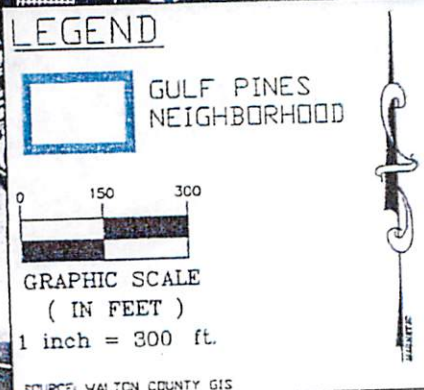 LEGEND
GULF PINES
NEIGHBORHOOD
0 150 300
GRAPHIC SCALE
( IN FEET )
1 inch = 300 ft.
SOURCE: WALTON COUNTY GIS